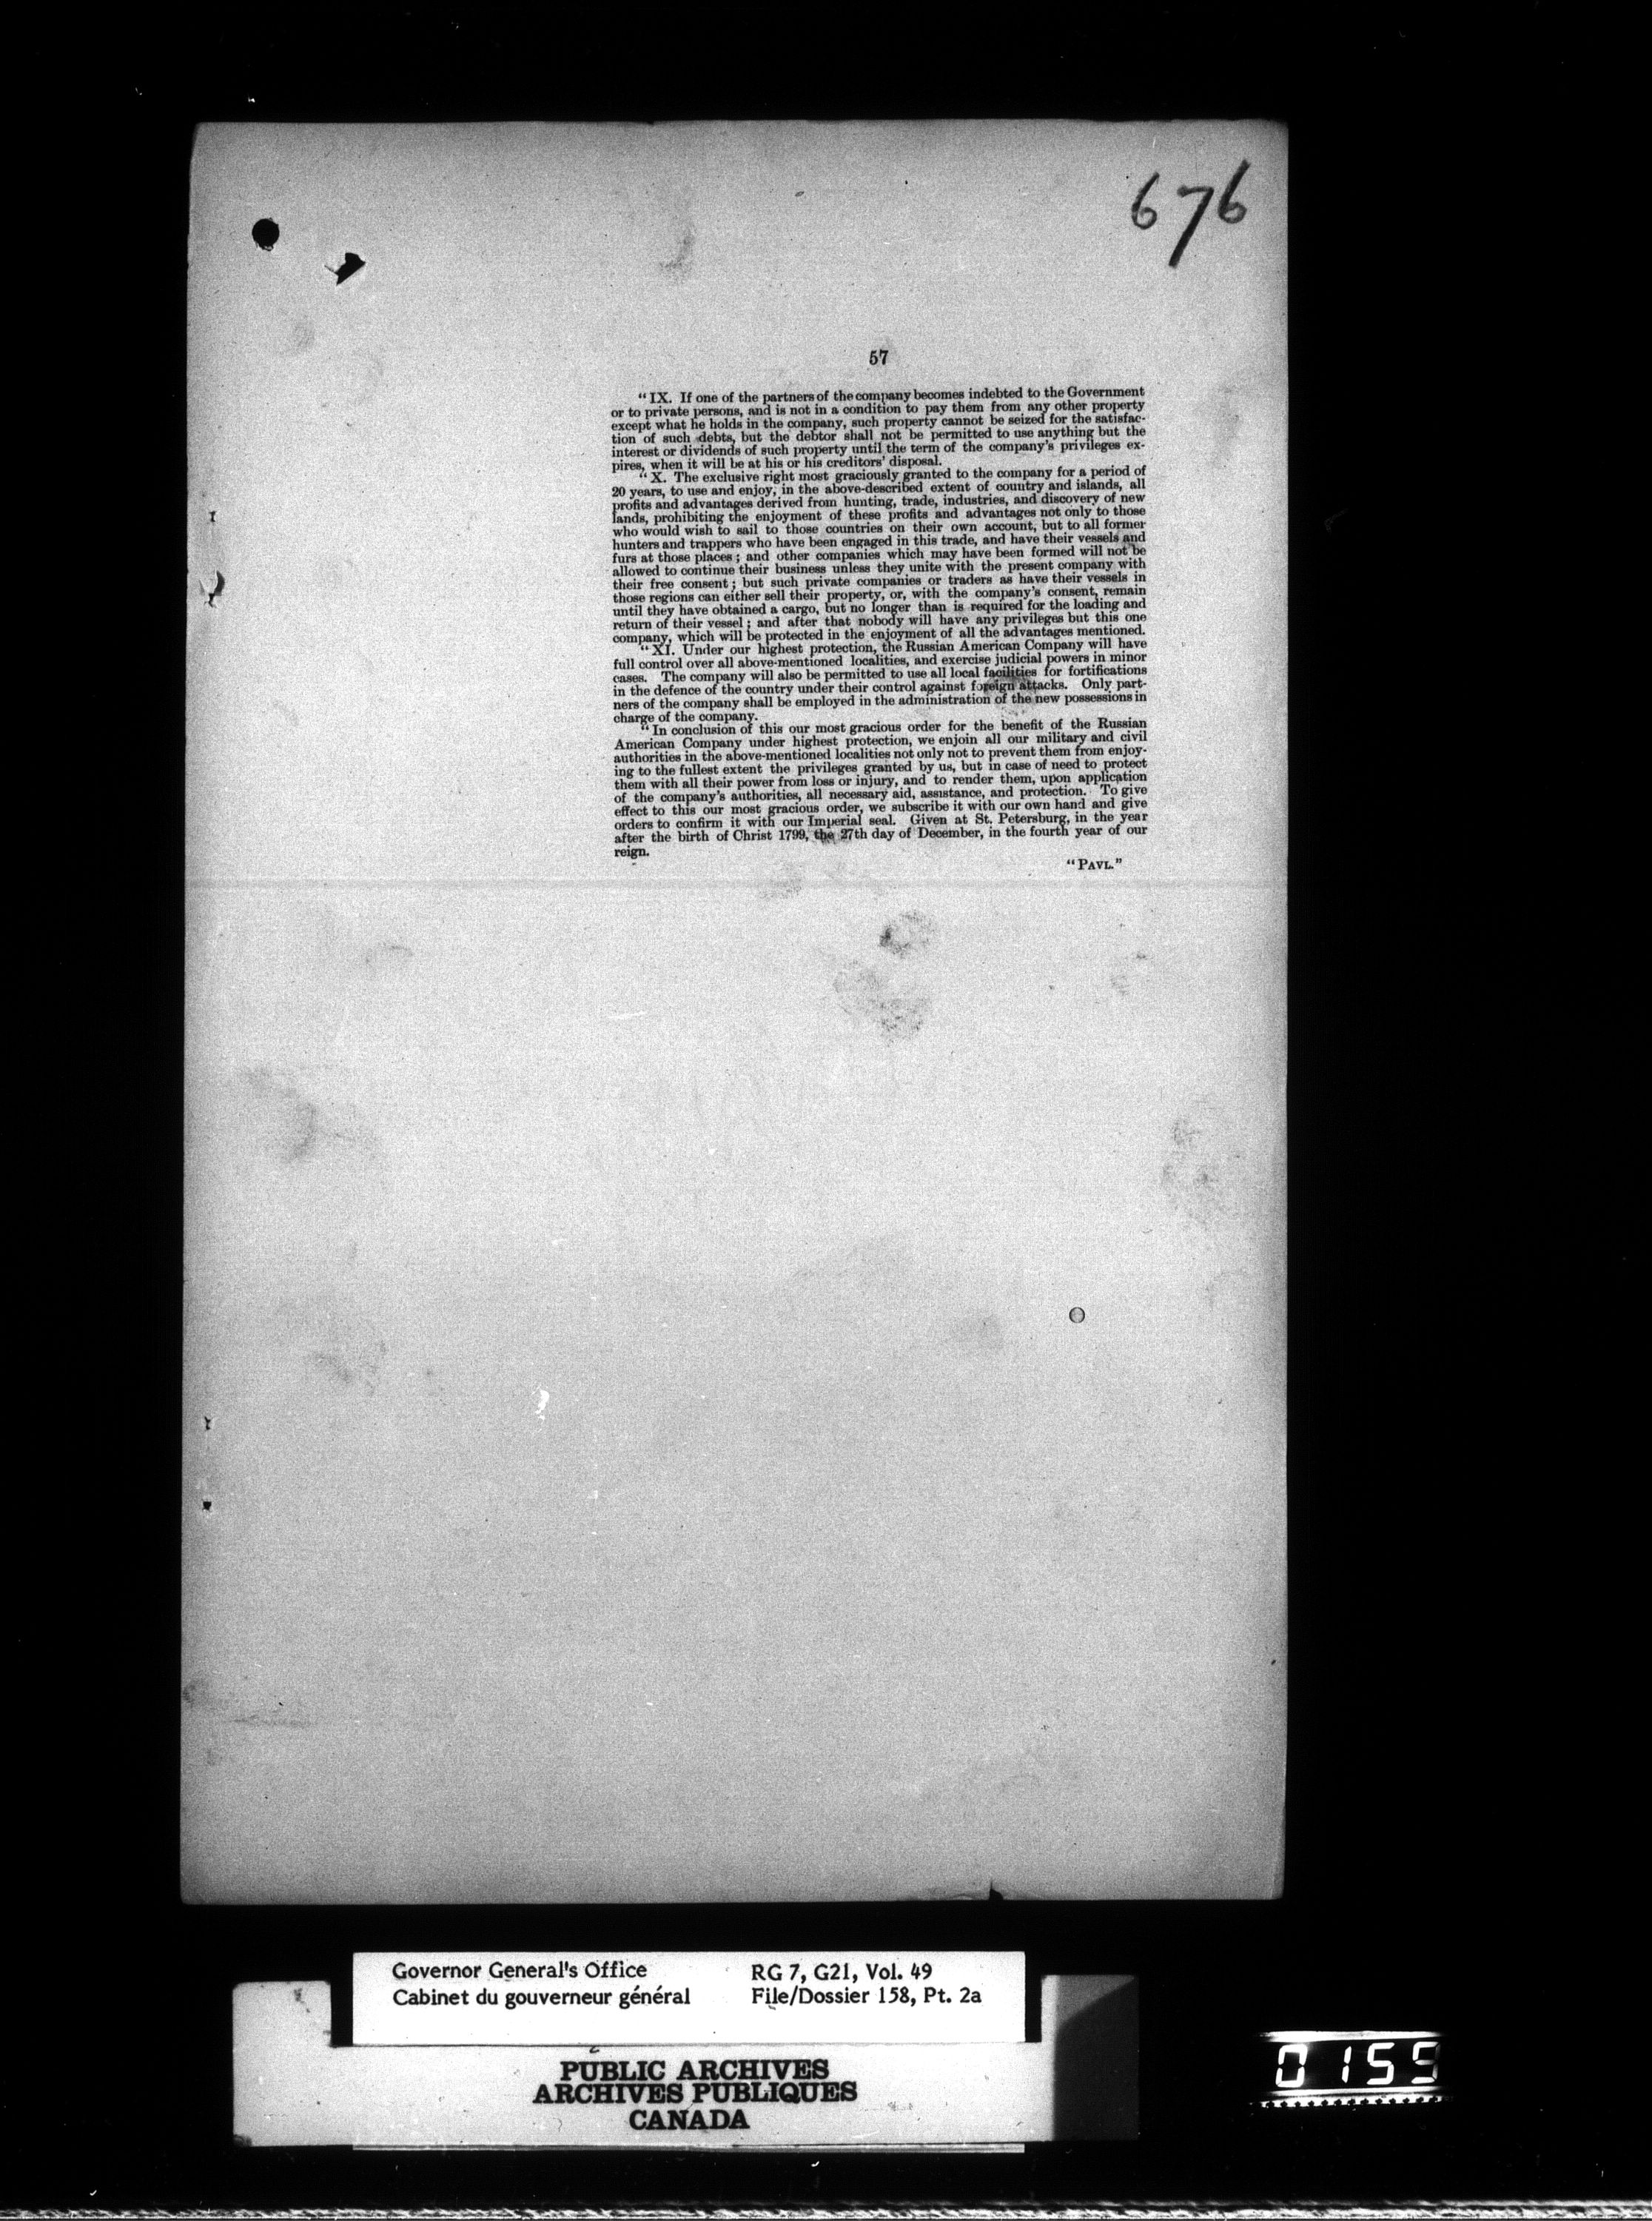 676
57
"IX. If one of the partners of the company becomes indebted to the Government
or to private persons, and is not in a condition to pay them from any other property
except what he holds in the company, such property cannot be seized for the satisfac-
tion of such debts, but the debtor shall not be permitted to use anything but the
interest or dividends of such property until the term of the company's privileges ex-
pires, when it will be at his or his creditors' disposal.
"X. The exclusive right most graciously granted to the company for a period of
20 years, to use and enjoy, in the above-described extent of country and islands, all
profits and advantages derived from hunting, trade, industries, and discovery of new
lands, prohibiting the enjoyment of these profits and advantages not only to those
who would wish to sail to those countries on their own account, but to all former
hunters and trappers who have been engaged in this trade, and have their vessels and
furs at those places; and other companies which may have been formed will not be
allowed to continue their business unless they unite with the present company with
their free consent; but such private companies or traders as have their vessels in
those regions can either sell their property, or, with the company's consent, remain
until they have obtained a cargo, but no longer than is required for the loading and
return of their vessel; and after that nobody will have any privileges but this one
company, which will be protected in the enjoyment of all the advantages mentioned.
"XI. Under our highest protection, the Russian American Company will have
full control over all above-mentioned localities, and exercise judicial powers in minor
cases. The company will also be permitted to use all local facilities for fortifications
in the defence of the country under their control against foreign attacks. Only part-
ners of the company shall be employed in the administration of the new possessions in
charge of the company.
"In conclusion of this our most gracious order for the benefit of the Russian
American Company under highest protection, we enjoin all our military and civil
authorities in the above-mentioned localities not only not to prevent them from enjoy-
ing to the fullest extent the privileges granted by us, but in case of need to protect
them with all their power from loss or injury, and to render them, upon application
of the company's authorities, all necessary aid, assistance, and protection. To give
effect to this our most gracious order, we subscribe it with our own hand and give
orders to confirm it with our Imperial seal. Given at St. Petersburg, in the year
after the birth of Christ 1799, the 27th day of December, in the fourth year of our
reign.
"PAVL."
Governor General's Office RG 7, G21, Vol. 49
Cabinet du gouverneur général File/Dossier 158, Pt. 2a
PUBLIC ARCHIVES
ARCHIVES PUBLIQUES
CANADA
0155